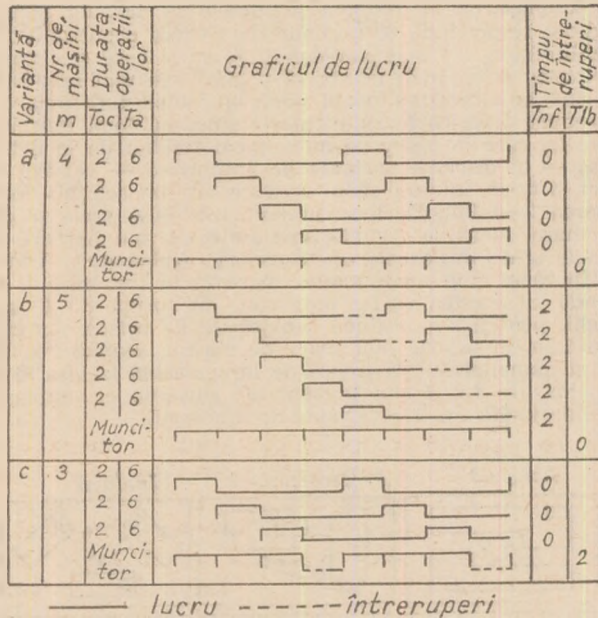 Variantă
Nr de mașini
Durata operațiilor
Graficul de lucru
Timpul de întreruperi
m Toc Ta Tnf Tlb
a 4 2 6 0
2 6 0
2 6 0
2 6 0
Munci-
tor 0
b 5 2 6 2
2 6 2
2 6 2
2 6 2
2 6 2
Munci-
tor 0
c 3 2 6 0
2 6 0
2 6 0
Munci-
tor 2
lucru întreruperi